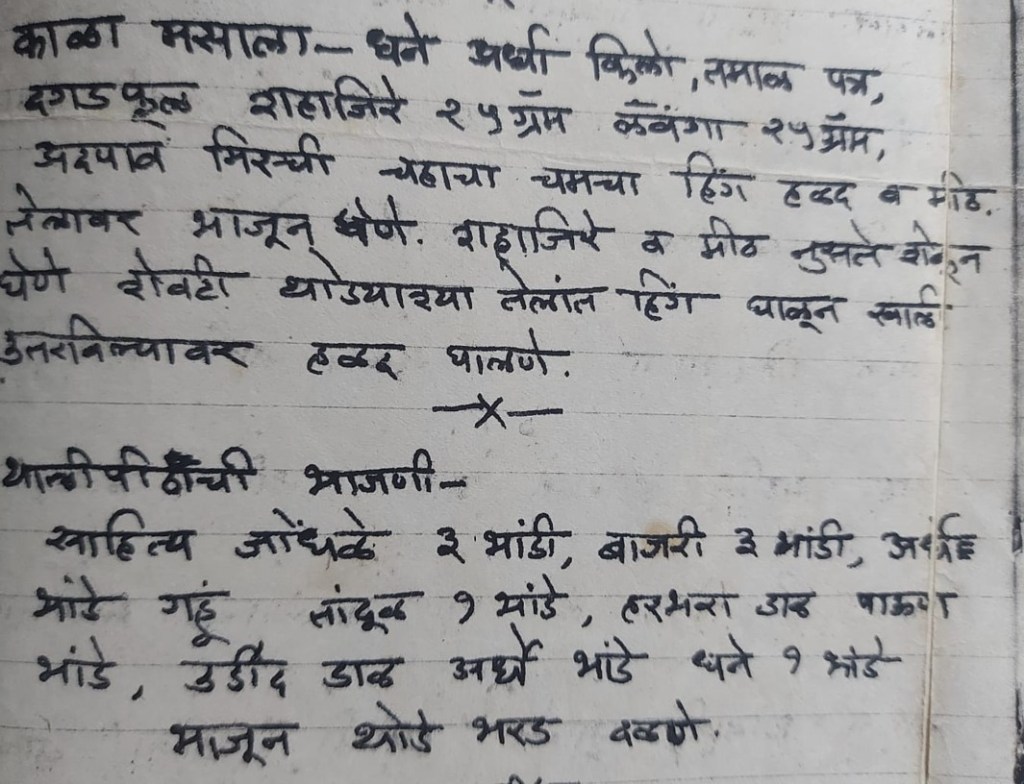 काळा मसाला – धने अर्धा किलो, तमाळ पत्र,
दगडफूल शहाजिरे २५ ग्रॅम लवंगा २५ ग्रॅम,
अदपाव मिरची चहाचा चमचा हिंग हळद व मीठ.
तेलावर भाजून घेणे. शहाजिरे व मीठ नुसते शेकून
घेणे शेवटी थोड्याश्या तेलांत हिंग घालून खाली
उतरविल्यावर हळद घालणे.
—x—
थालीपीठाची भाजणी –
साहित्य जोंधळे ३ भांडी, बाजरी ३ भांडी, अर्धे
भांडे गहूं तांदूळ १ भांडे, हरभरा डाळ पाऊण
भांडे, उडीद डाळ अर्धे भांडे धने १ भांडे
भाजून थोडे भरड दळणे.